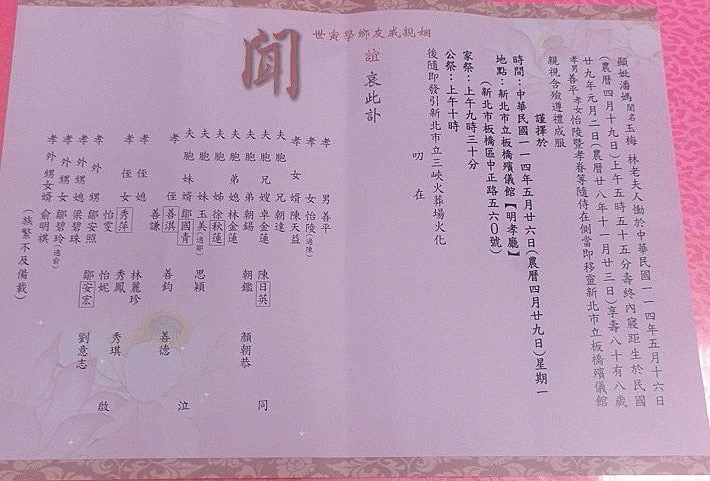 顯妣潘媽閨名玉梅 林老夫人慟於中華民國一一四年五月十六日
(農曆四月十九日)上午五時五十五分壽終內寢距生於民國
廿九年元月二日(農曆廿八年十一月廿三日)享壽八十有八歲
孝男善平 孝女怡陵暨孝眷等隨侍在側當即移靈新北市立板橋殯儀館
親視含殮遵禮成服
謹擇於
時間:中華民國一一四年五月廿六日(農曆四月廿九日)星期一
地點:新北市立板橋殯儀館【明孝廳】
(新北市板橋區中正路五六0號)
家祭:上午九時三十分
公祭:上午十時
後隨即發引新北市立三峽火葬場火化
叨 在
姻親戚友鄉學寅世
誼 哀此訃
聞
孝 男 善平
孝 女 怡陵(適陳)
孝 女 婿 陳天益
夫 胞 兄 朝達
夫 胞 兄 嫂 卓金蓮 陳日英
夫 胞 弟 朝錫 朝鑑 顏朝恭 同
夫 胞 弟 媳 林金蓮
夫 胞 姊 徐秋蓮
夫 胞 妹 玉美(適鄒) 思穎
夫 胞 妹 婿 鄒國青
孝 姪 善淇 善鈞 善德 泣
善謙
孝 姪 媳 林麗珍
孝 姪 女 秀萍 秀鳳 秀琪
怡雯 怡妮 啟
孝 外 甥 鄒安照 鄒安宏 劉意志
孝 外 甥 媳 梁碧珠
孝 外 甥 女 鄒碧玲(適俞)
孝 外 甥 女 婿 俞明祺
(族繁不及備載)